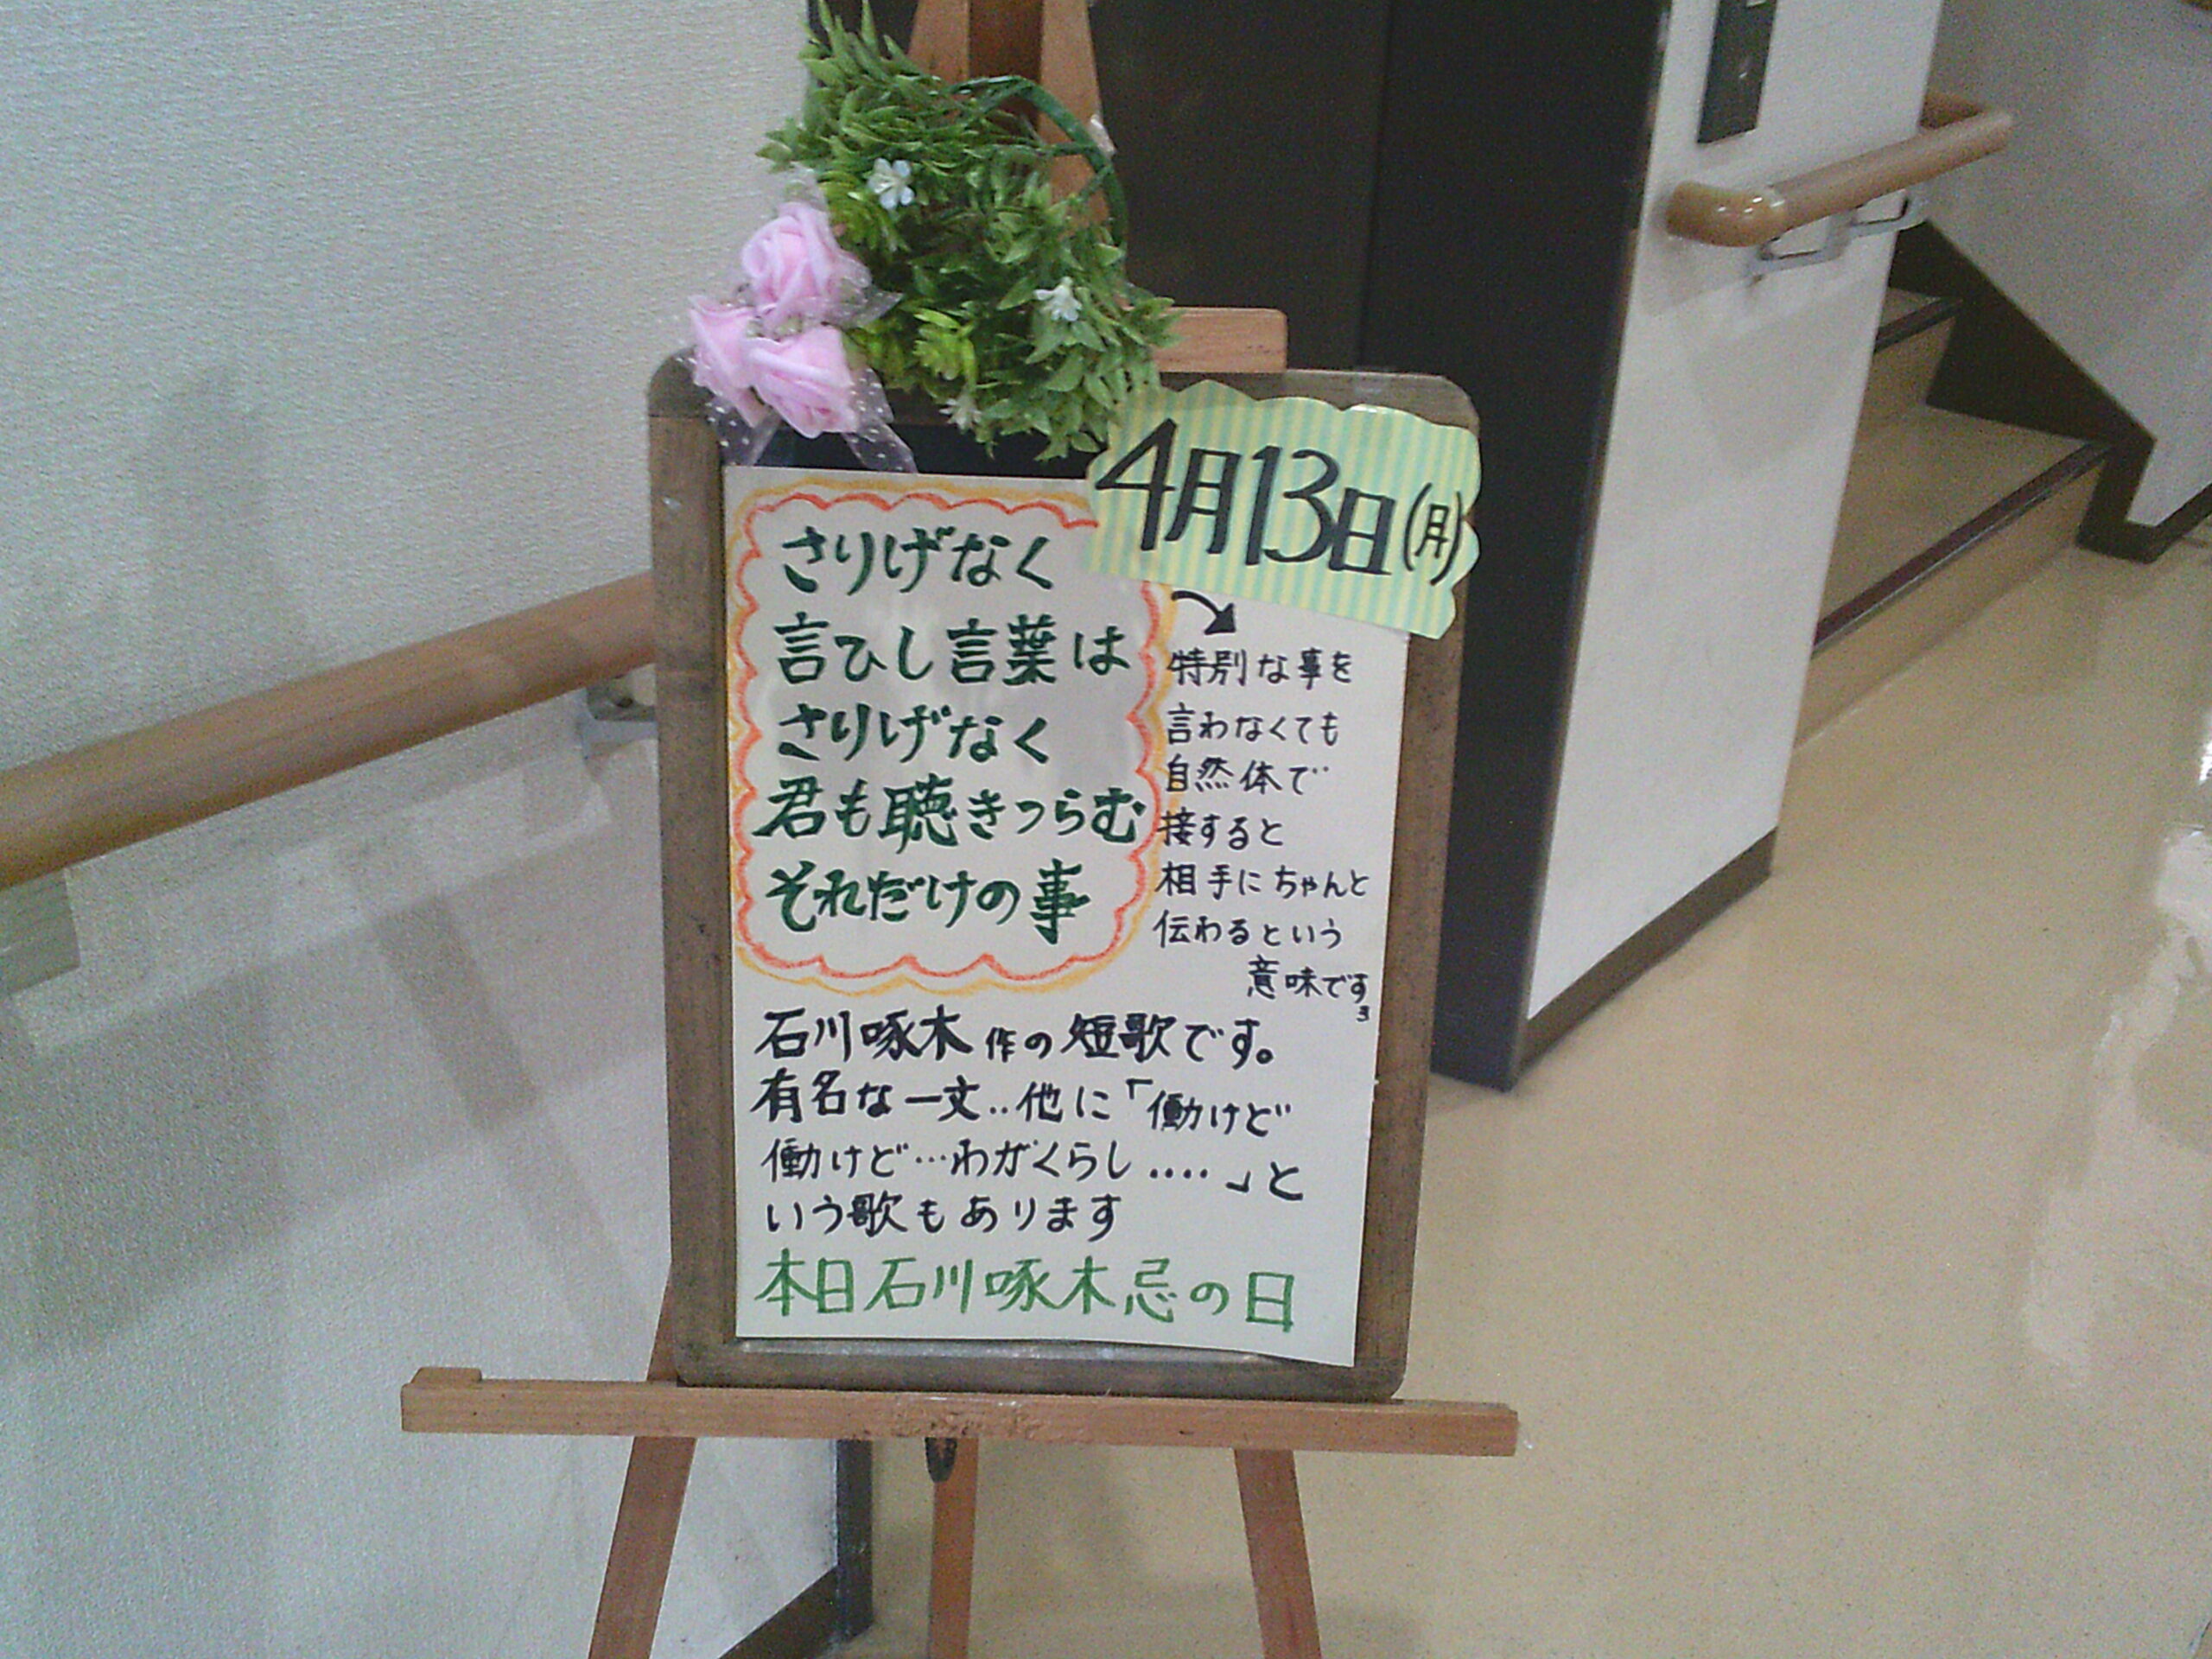 4月13日(月)
さりげなく
言ひし言葉は
さりげなく
君も聴きつらむ
それだけの事
特別な事を
言わなくても
自然体で
接すると
相手にちゃんと
伝わるという
意味です
石川啄木作の短歌です。
有名な一文‥他に「働けど
働けど…わがくらし‥‥」と
いう歌もあります
本日石川啄木忌の日